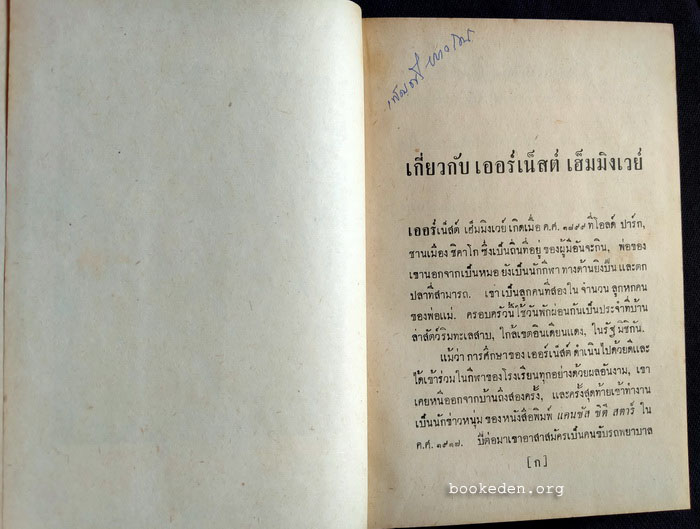 เกี่ยวกับ เออร์เน็สต์ เฮ็มมิงเวย์
เออร์เน็สต์ เฮ็มมิงเวย์ เกิดเมื่อ ค.ศ. ๑๘๙๙ ที่โอลด์ ปาร์ก,
ชานเมือง ชิคาโก ซึ่งเป็นถิ่นที่อยู่ ของผู้มีอันจะกิน, พ่อของ
เขานอกจากเป็นหมอ ยังเป็นนักกีฬา ทางด้านยิงปืน และตก
ปลาที่สามารถ. เขาเป็นลูกคนที่สองใน จำนวน ลูกหกคน
ของพ่อแม่. ครอบครัวนี้ใช้วันพักผ่อนกันเป็นประจำที่บ้าน
ล่าสัตว์ริมทะเลสาบ, ใกล้เขตอินเดียนแดง, ในรัฐ มิชิกัน.
แม้ว่า การศึกษาของ เออร์เน็สต์ ดำเนินไปด้วยดีและ
ได้เข้าร่วม ในกีฬาของโรงเรียนทุกอย่างด้วยผลอันงาม, เขา
เคยหนีออกจากบ้านถึงสองครั้ง, และครั้งสุดท้ายเข้าทำงาน
เป็นนักข่าวหนุ่ม ของหนังสือพิมพ์ แคนซัส ซิตี สตาร์ ใน
ค.ศ. ๑๙๑๗. ปีต่อมาเขาอาสาสมัครเป็นคนขับรถพยาบาล
[ก]
bookeden.org